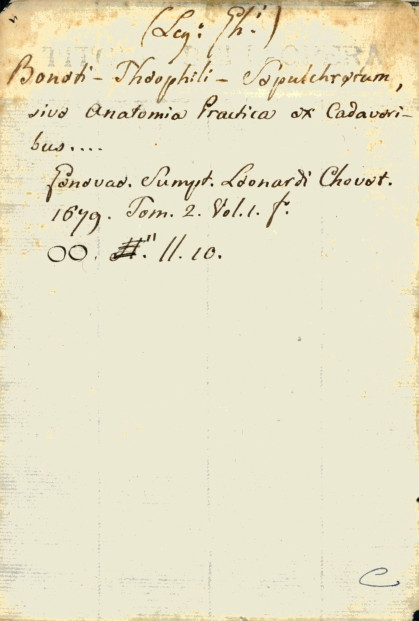 (Leg: Ph:)
Boneti - Theophili - Sepulchretum,
sive Anatomia Practica ex Cadaveri-
bus....
Genevae. Sumpt. Leonardi Chouet.
1679. Tom. 2. Vol. 1. f.
OO. 11. 10.
C